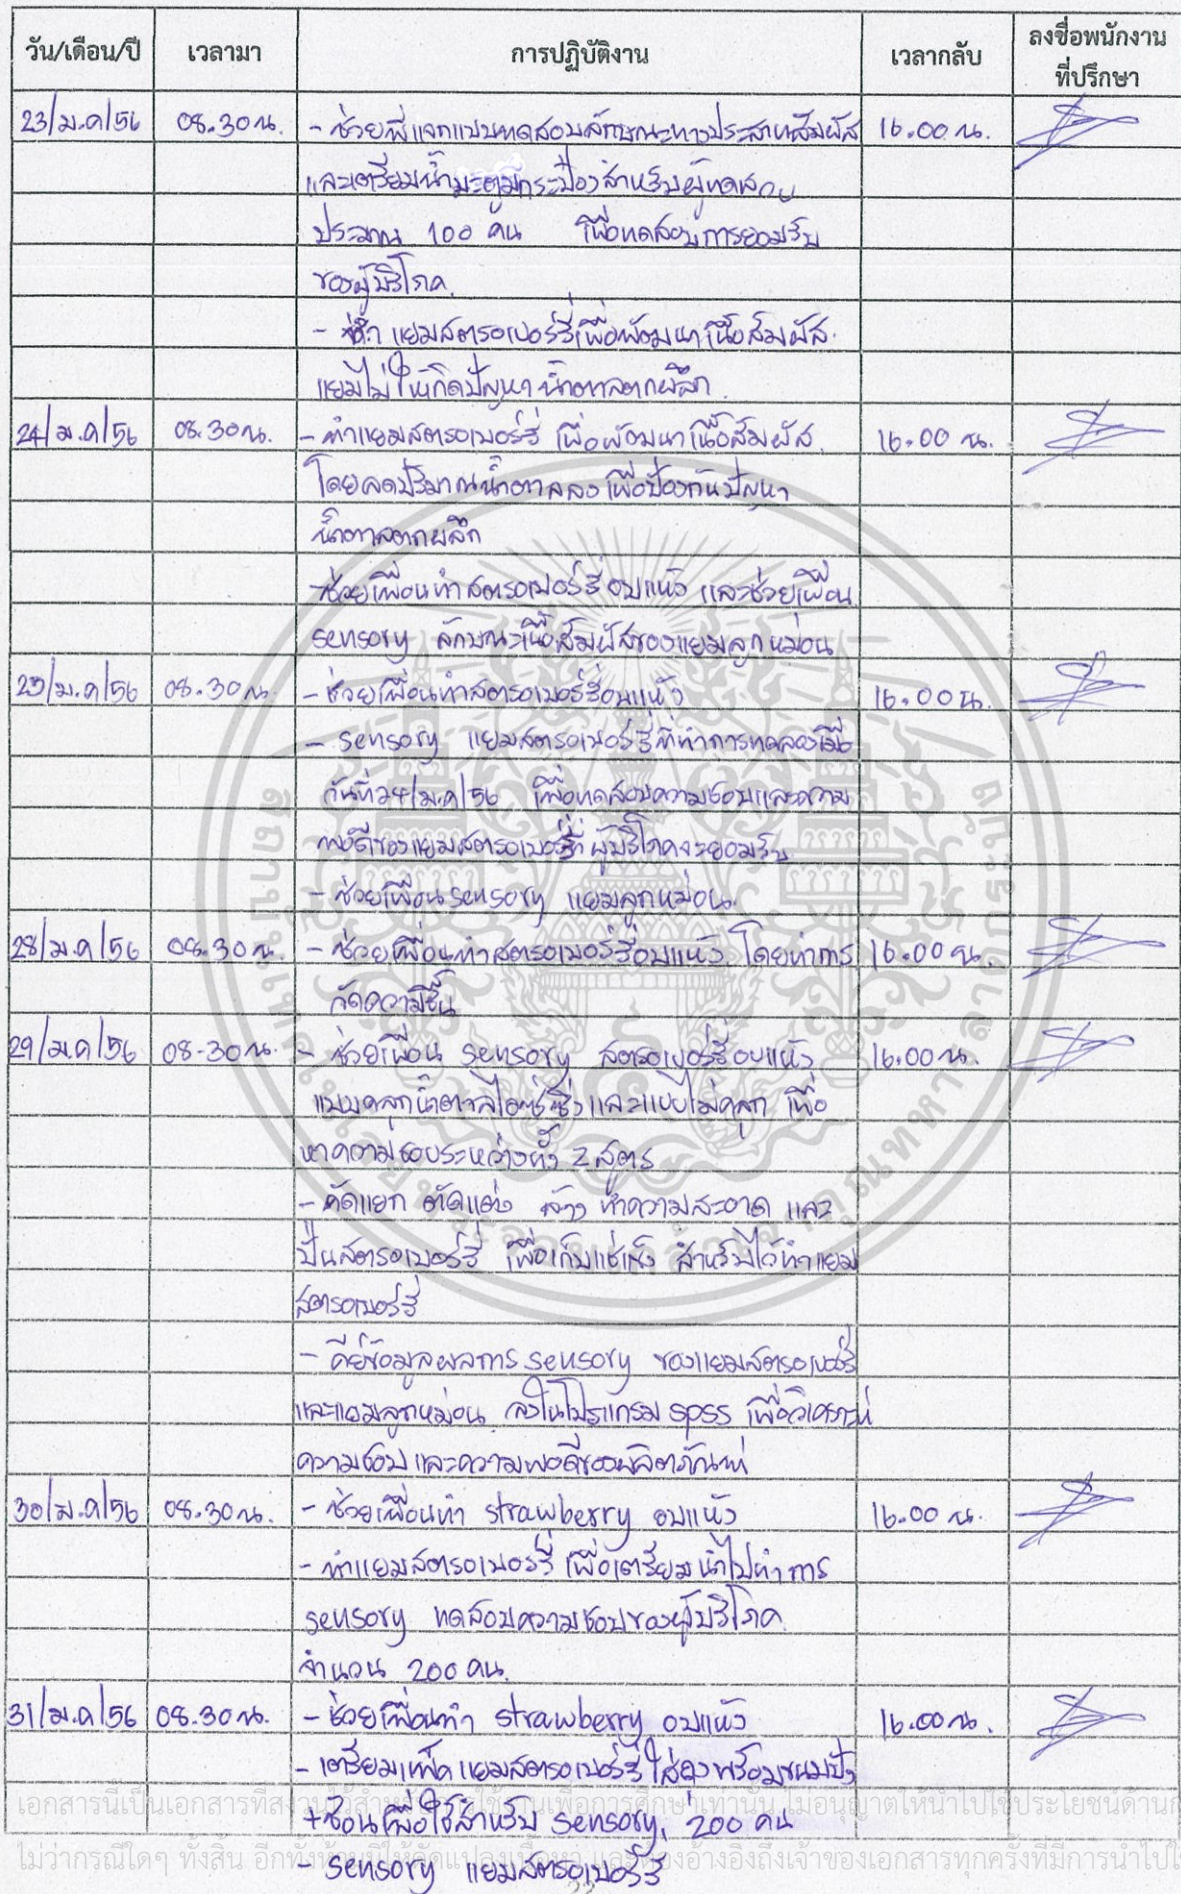 วัน/เดือน/ปี เวลามา การปฏิบัติงาน เวลากลับ ลงชื่อพนักงาน
ที่ปรึกษา
23/ม.ค/56 08.30 น. - ช่วยพี่แจกแบบทดสอบลักษณะทางประสาทสัมผัส 16.00 น.
และเตรียมน้ำมะตูมกระป๋องสำหรับผู้ทดสอบ
ประมาณ 100 คน เพื่อทดสอบการยอมรับ
ของผู้บริโภค
- ทำ แยมสตรอเบอร์รี่เพื่อพัฒนาเนื้อสัมผัส
แยมไม่ให้เกิดปัญหา น้ำตาลตกผลึก
24/ม.ค/56 08.30 น. - ทำแยมสตรอเบอร์รี่ เพื่อพัฒนาเนื้อสัมผัส 16.00 น.
โดยลดปริมาณน้ำตาลลง เพื่อป้องกันปัญหา
น้ำตาลตกผลึก
- ช่วยเพื่อนทำสตรอเบอร์รี่อบแห้ง และช่วยเพื่อน
sensory ลักษณะเนื้อสัมผัสของแยมลูกหม่อน
25/ม.ค/56 08.30 น. - ช่วยเพื่อนทำสตรอเบอร์รี่อบแห้ง 16.00 น.
- sensory แยมสตรอเบอร์รี่ที่ทำการทดลองเมื่อ
วันที่ 24/ม.ค/56 เพื่อทดสอบความชอบและความ
พอดีของแยมสตรอเบอร์รี่ที่ ผู้บริโภคจะยอมรับ
- ช่วยเพื่อน sensory แยมลูกหม่อน
28/ม.ค/56 08.30 น. - ช่วยเพื่อนทำสตรอเบอร์รี่อบแห้ง โดยทำการ 16.00 น.
วัดความชื้น
29/ม.ค/56 08.30 น. - ช่วยเพื่อน sensory สตรอเบอร์รี่อบแห้ง 16.00 น.
แบบคลุกน้ำตาลไอซ์ซิ่ง และแบบไม่คลุก เพื่อ
หาความชอบระหว่างทั้ง 2 สูตร
- คัดแยก ตัดแต่ง ล้าง ทำความสะอาด และ
ปั่นสตรอเบอร์รี่ เพื่อเก็บแช่แข็ง สำหรับไว้ทำแยม
สตรอเบอร์รี่
- คีย์ข้อมูลผลการ sensory ของแยมสตรอเบอร์รี่
และแยมลูกหม่อน ลงในโปรแกรม spss เพื่อวิเคราะห์
ความชอบ และความพอดีของผลิตภัณฑ์
30/ม.ค/56 08.30 น. - ช่วยเพื่อนทำ strawberry อบแห้ง 16.00 น.
- ทำแยมสตรอเบอร์รี่ เพื่อเตรียมนำไปทำการ
sensory ทดสอบความชอบของผู้บริโภค
จำนวน 200 คน
31/ม.ค/56 08.30 น. - ช่วยเพื่อนทำ strawberry อบแห้ง 16.00 น.
- เตรียมแพ็คแยมสตรอเบอร์รี่ใส่ถุงพร้อมขนมปัง
+ช้อน เพื่อใช้สำหรับ sensory, 200 คน
- sensory แยมสตรอเบอร์รี่